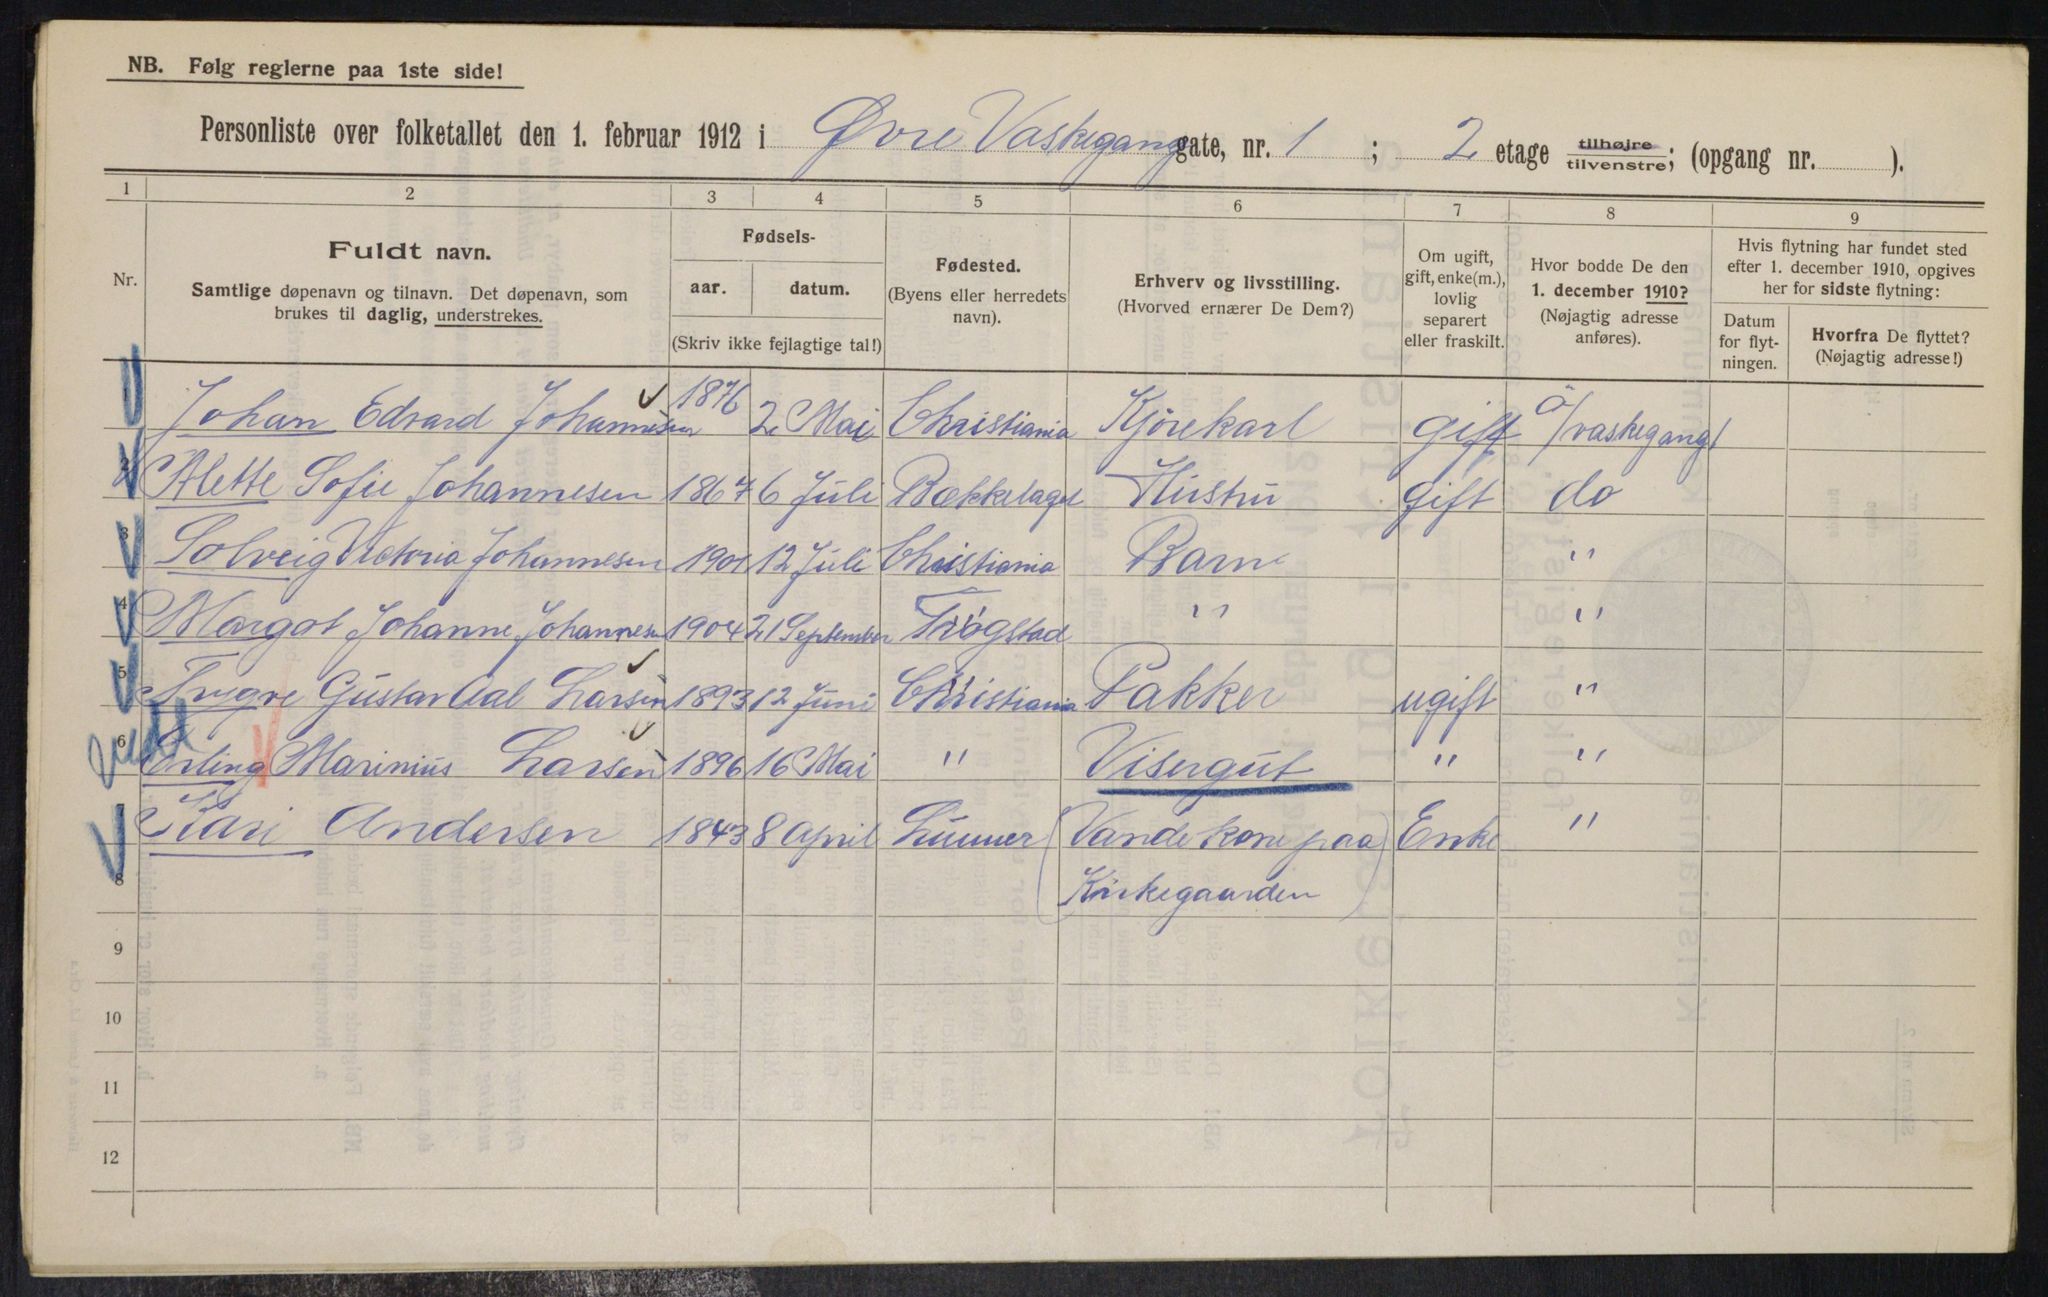 NB. Følg reglerne paa 1ste side!
Personliste over folketallet den 1. februar 1912 i Øvre Vaskegang gate, nr. 1 ; 2 etage tilhøjre tilvenstre; (opgang nr. ).
1 2 3 4 5 6 7 8 9
Nr.
Fuldt navn.
Samtlige døpenavn og tilnavn. Det døpenavn, som
brukes til daglig, understrekes.
Fødsels-
aar. datum.
(Skriv ikke fejlagtige tal!)
Fødested.
(Byens eller herredets
navn).
Erhverv og livsstilling.
(Hvorved ernærer De Dem?)
Om ugift,
gift, enke(m.),
lovlig
separert
eller fraskilt.
Hvor bodde De den
1. december 1910?
(Nøjagtig adresse
anføres).
Hvis flytning har fundet sted
efter 1. december 1910, opgives
her for sidste flytning:
Datum
for flyt-
ningen.
Hvorfra De flyttet?
(Nøjagtig adresse!)
1 Johan Edvard Johannesen 1876 2 Mai Christiania Kjørekarl gift Ö/vaskegang 1
2 Alette Sofie Johannesen 1867 6 Juli Bækkelaget Hustru gift do
3 Solveig Victoria Johannesen 1901 12 Juli Christiania Barn "
4 Margot Johanne Johannesen 1904 21 September Trøgstad " "
5 Trygve Gustav Larsen 1893 12 Juni Christiania Pakker ugift "
6 Erling Marinius Larsen 1896 16 Mai " Visergut " "
Kari Andersen 1843 8 April Lunner (Vandekone paa Enke "
8 Kirkegaarden)
9
10
11
12